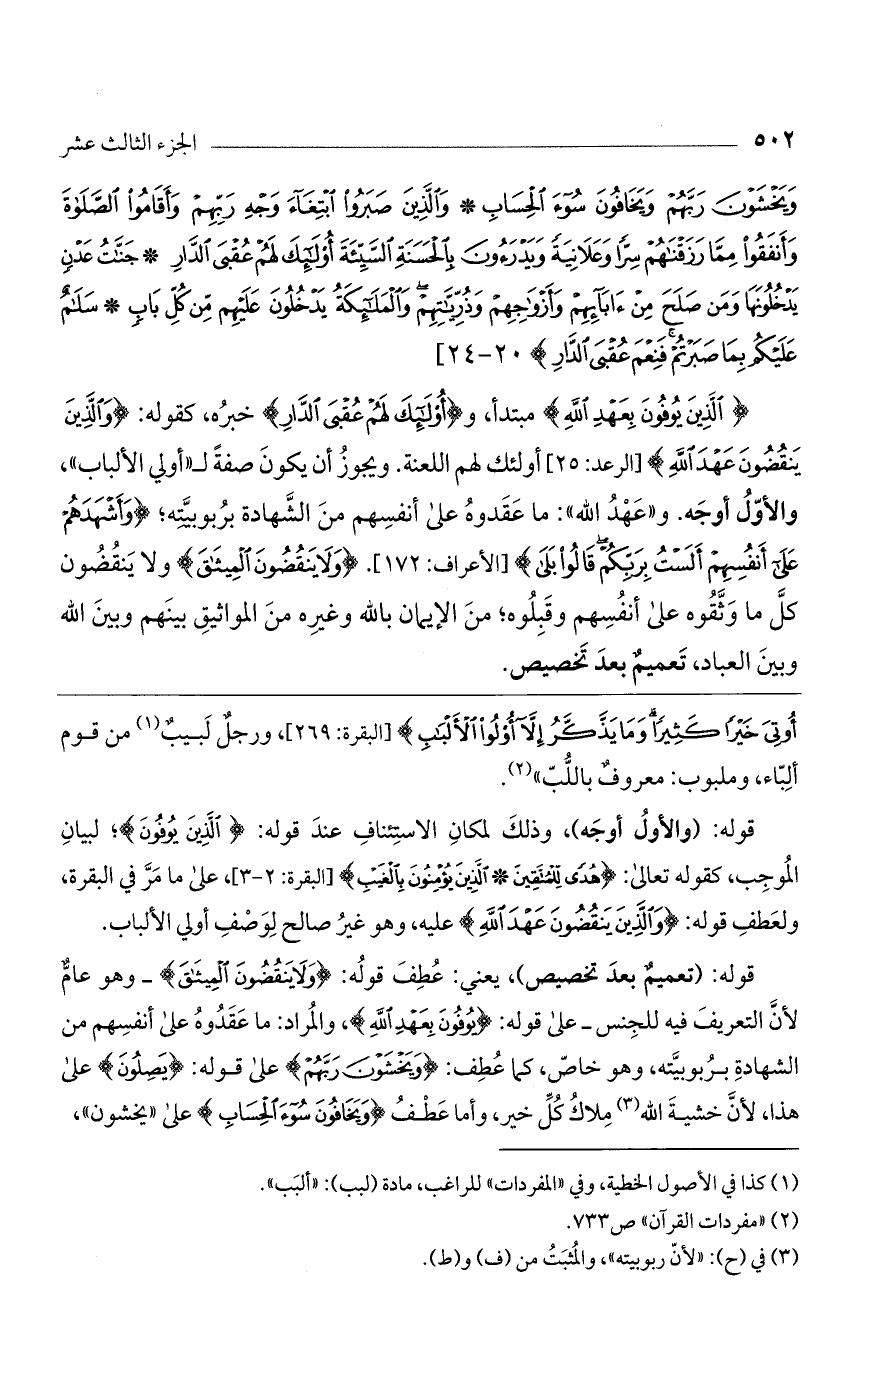 ٥٠٢ الجزء الثالث عشر
وَيَخْشَوْنَ رَبَّهُمْ وَيَخَافُونَ سُوٓءَ ٱلْحِسَابِ * وَٱلَّذِينَ صَبَرُوا۟ ٱبْتِغَآءَ وَجْهِ رَبِّهِمْ وَأَقَامُوا۟ ٱلصَّلَوٰةَ
وَأَنفَقُوا۟ مِمَّا رَزَقْنَٰهُمْ سِرًّا وَعَلَانِيَةً وَيَدْرَءُونَ بِٱلْحَسَنَةِ ٱلسَّيِّئَةَ أُو۟لَٰٓئِكَ لَهُمْ عُقْبَى ٱلدَّارِ * جَنَّٰتُ عَدْنٍ
يَدْخُلُونَهَا وَمَن صَلَحَ مِنْ ءَابَآئِهِمْ وَأَزْوَٰجِهِمْ وَذُرِّيَّٰتِهِمْ ۖ وَٱلْمَلَٰٓئِكَةُ يَدْخُلُونَ عَلَيْهِم مِّن كُلِّ بَابٍ * سَلَٰمٌ
عَلَيْكُم بِمَا صَبَرْتُمْ ۚ فَنِعْمَ عُقْبَى ٱلدَّارِ ﴾ ٢٠-٢٤]
﴿ ٱلَّذِينَ يُوفُونَ بِعَهْدِ ٱللَّهِ ﴾ مبتدأ، و﴿أُو۟لَٰٓئِكَ لَهُمْ عُقْبَى ٱلدَّارِ﴾ خبرُه، كقوله: ﴿وَٱلَّذِينَ
يَنقُضُونَ عَهْدَ ٱللَّهِ ﴾ [الرعد: ٢٥] أولئك لهم اللعنة. ويجوزُ أن يكونَ صفةً لـ«أولي الألباب»،
والأوّلُ أوجَه. و«عَهْدُ الله»: ما عَقَدوهُ علىٰ أنفسِهم منَ الشَّهادة برُبوبيَّتِه؛ ﴿وَأَشْهَدَهُمْ
عَلَىٰٓ أَنفُسِهِمْ أَلَسْتُ بِرَبِّكُمْ ۖ قَالُوا۟ بَلَىٰ ﴾ [الأعراف: ١٧٢]. ﴿وَلَا يَنقُضُونَ ٱلْمِيثَٰقَ﴾ ولا يَنقُضُون
كلَّ ما وَثَّقُوه علىٰ أنفُسِهم وقَبِلُوه؛ منَ الإيمان بالله وغيرِه منَ المواثيقِ بينَهم وبينَ الله
وبينَ العباد، تَعميمٌ بعدَ تَخصيص.
أُوتِىَ خَيْرًا كَثِيرًا ۗ وَمَا يَذَّكَّرُ إِلَّآ أُو۟لُوا۟ ٱلْأَلْبَٰبِ ﴾ [البقرة: ٢٦٩]، ورجلٌ لَبيبٌ(١) من قوم
ألِبّاء، وملبوب: معروفٌ باللُّبّ»(٢).
قوله: (والأولُ أوجَه)، وذلكَ لمكانِ الاستِئنافِ عندَ قوله: ﴿ ٱلَّذِينَ يُوفُونَ﴾؛ لبيانِ
المُوجِب، كقوله تعالىٰ: ﴿هُدًى لِّلْمُتَّقِينَ * ٱلَّذِينَ يُؤْمِنُونَ بِٱلْغَيْبِ﴾ [البقرة: ٢-٣]، علىٰ ما مَرَّ في البقرة،
ولعَطفِ قوله: ﴿وَٱلَّذِينَ يَنقُضُونَ عَهْدَ ٱللَّهِ ﴾ عليه، وهو غيرُ صالح لِوَصْفِ أولي الألباب.
قوله: (تعميمٌ بعدَ تخصيص)، يعني: عُطِفَ قولُه: ﴿وَلَا يَنقُضُونَ ٱلْمِيثَٰقَ﴾ - وهو عامٌّ
لأنَّ التعريفَ فيه للجِنس - علىٰ قوله: ﴿يُوفُونَ بِعَهْدِ ٱللَّهِ﴾، والمُراد: ما عَقَدُوهُ علىٰ أنفسِهم من
الشهادةِ برُبوبيَّته، وهو خاصّ، كما عُطِف: ﴿وَيَخْشَوْنَ رَبَّهُمْ﴾ علىٰ قوله: ﴿يَصِلُونَ﴾ علىٰ
هذا، لأنَّ خشيةَ الله(٣) مِلاكُ كُلِّ خير، وأما عَطْفُ ﴿وَيَخَافُونَ سُوٓءَ ٱلْحِسَابِ ﴾ علىٰ «يخشون»،
(١) كذا في الأصول الخطية، وفي «المفردات» للراغب، مادة (لبب): «ألبَب».
(٢) «مفردات القرآن» ص٧٣٣.
(٣) في (ح): «لأنّ ربوبيته»، والمُثبَتُ من (ف) و(ط).